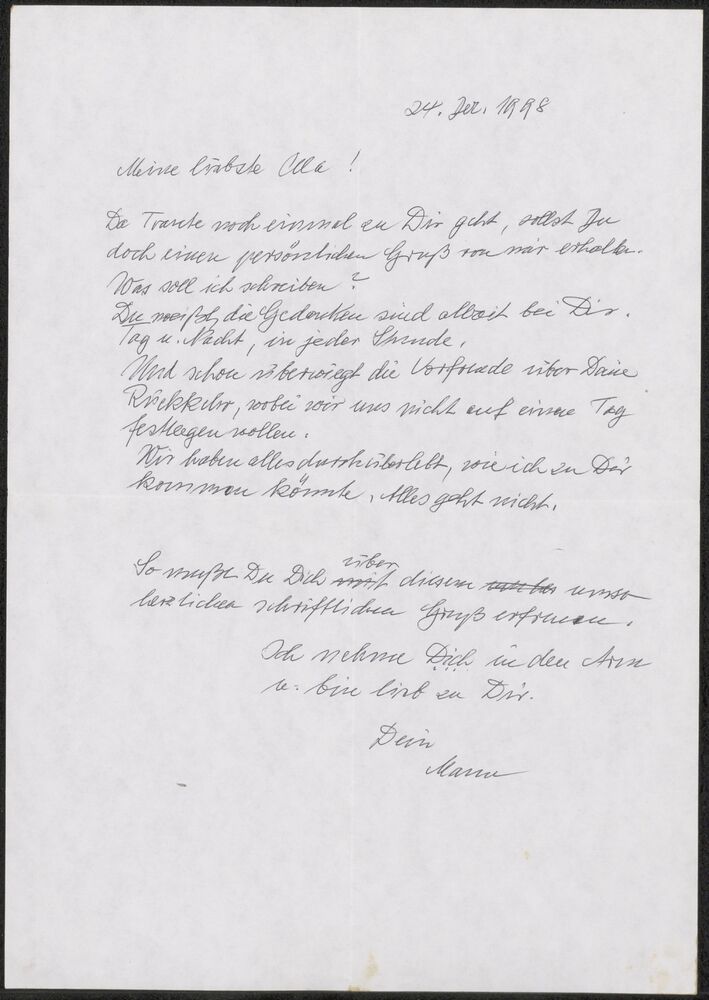 24. Dez. 1998
Meine liebste Olla !
Da Traute noch einmal zu Dir geht, sollst Du
doch einen persönlichen Gruß von mir erhalten.
Was soll ich schreiben ?
Du weißt, die Gedanken sind allzeit bei Dir.
Tag u. Nacht, in jeder Stunde.
Und schon überwiegt die Vorfreude über Deine
Rückkehr, wobei wir uns nicht auf einen Tag
festlegen wollen.
Wir haben alles durchüberlebt, wie ich zu Dir
kommen könnte. Alles geht nicht.
So mußt Du Dich über mit diesen umso
herzlichen schriftlichen Gruß erfreuen.
Ich nehme Dich in den Arm
u. bin lieb zu Dir.
Dein
Mann